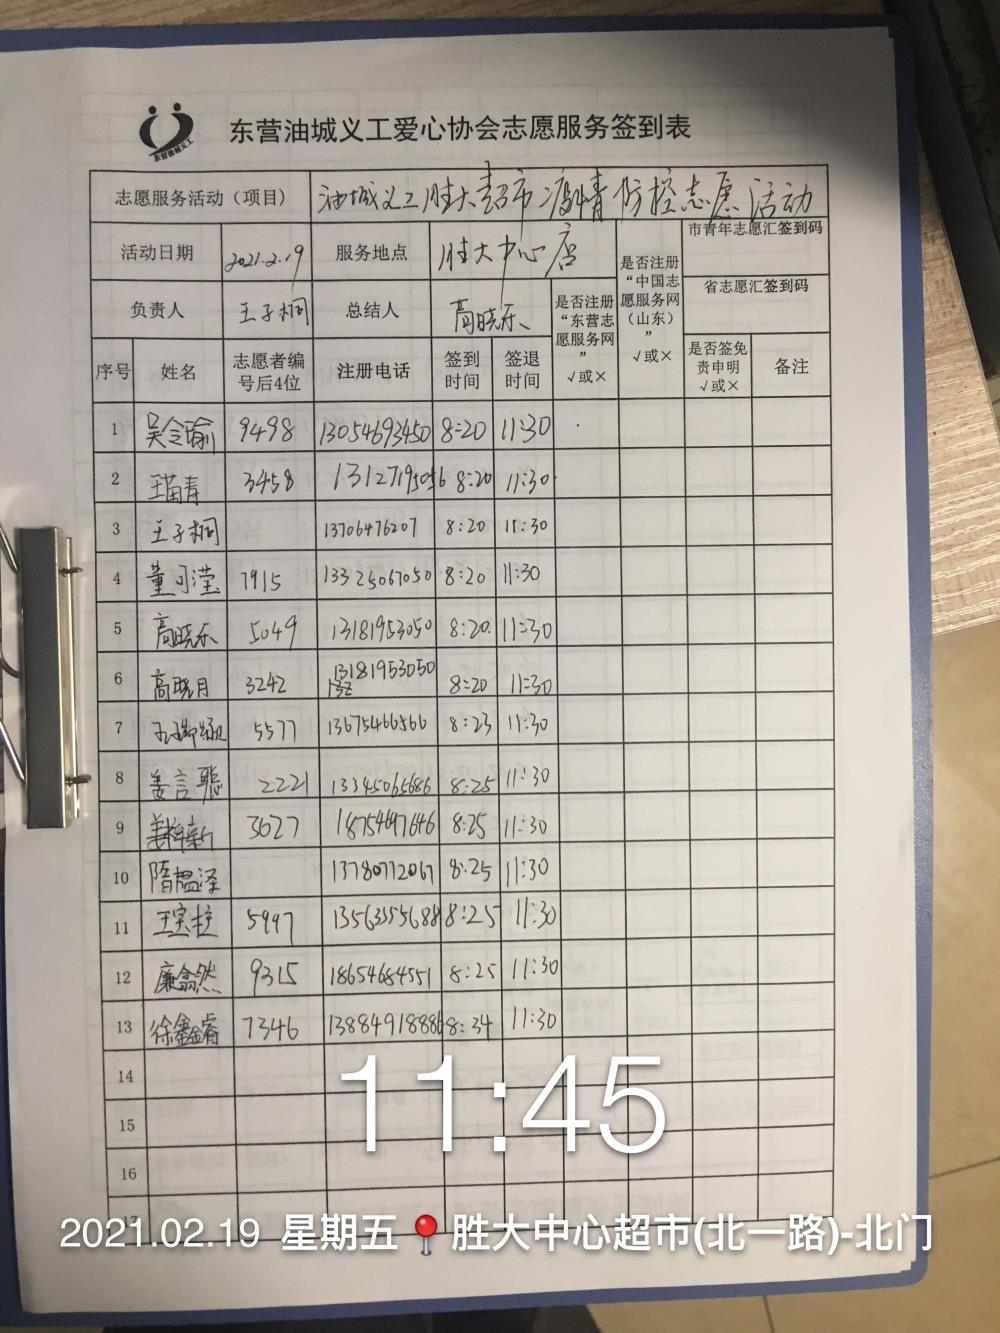 东营油城义工
东营油城义工爱心协会志愿服务签到表
志愿服务活动（项目） 油城义工胜大超市疫情防控志愿活动
活动日期 2021.2.19 服务地点 胜大中心店 是否注册“中国志愿服务网（山东）”√或× 市青年志愿汇签到码
负责人 王子桐 总结人 高晓乐 是否注册“东营志愿服务网”√或× 省志愿汇签到码
序号 姓名 志愿者编号后4位 注册电话 签到时间 签退时间 是否签免责申明√或× 备注
1 吴令瑜 9498 13054693450 8:20 11:30
2 王苗青 3458 13127195096 8:20 11:30
3 王子桐 13706476207 8:20 11:30
4 董可滢 7915 13325067050 8:20 11:30
5 高晓乐 5049 13181953050 8:20 11:30
6 高晓月 3242 13181953050 8:20 11:30
7 5577 13675466566 8:23 11:30
8 姜言聪 2221 13345065686 8:25 11:30
9 3627 18754697646 8:25 11:30
10 隋楹泽 13780772067 8:25 11:30
11 王宝柱 5997 13563355688 8:25 11:30
12 廉翕然 9315 18654684551 8:25 11:30
13 徐鑫睿 7346 13884918886 8:34 11:30
14
15
16
17
11:45
2021.02.19 星期五 胜大中心超市(北一路)-北门